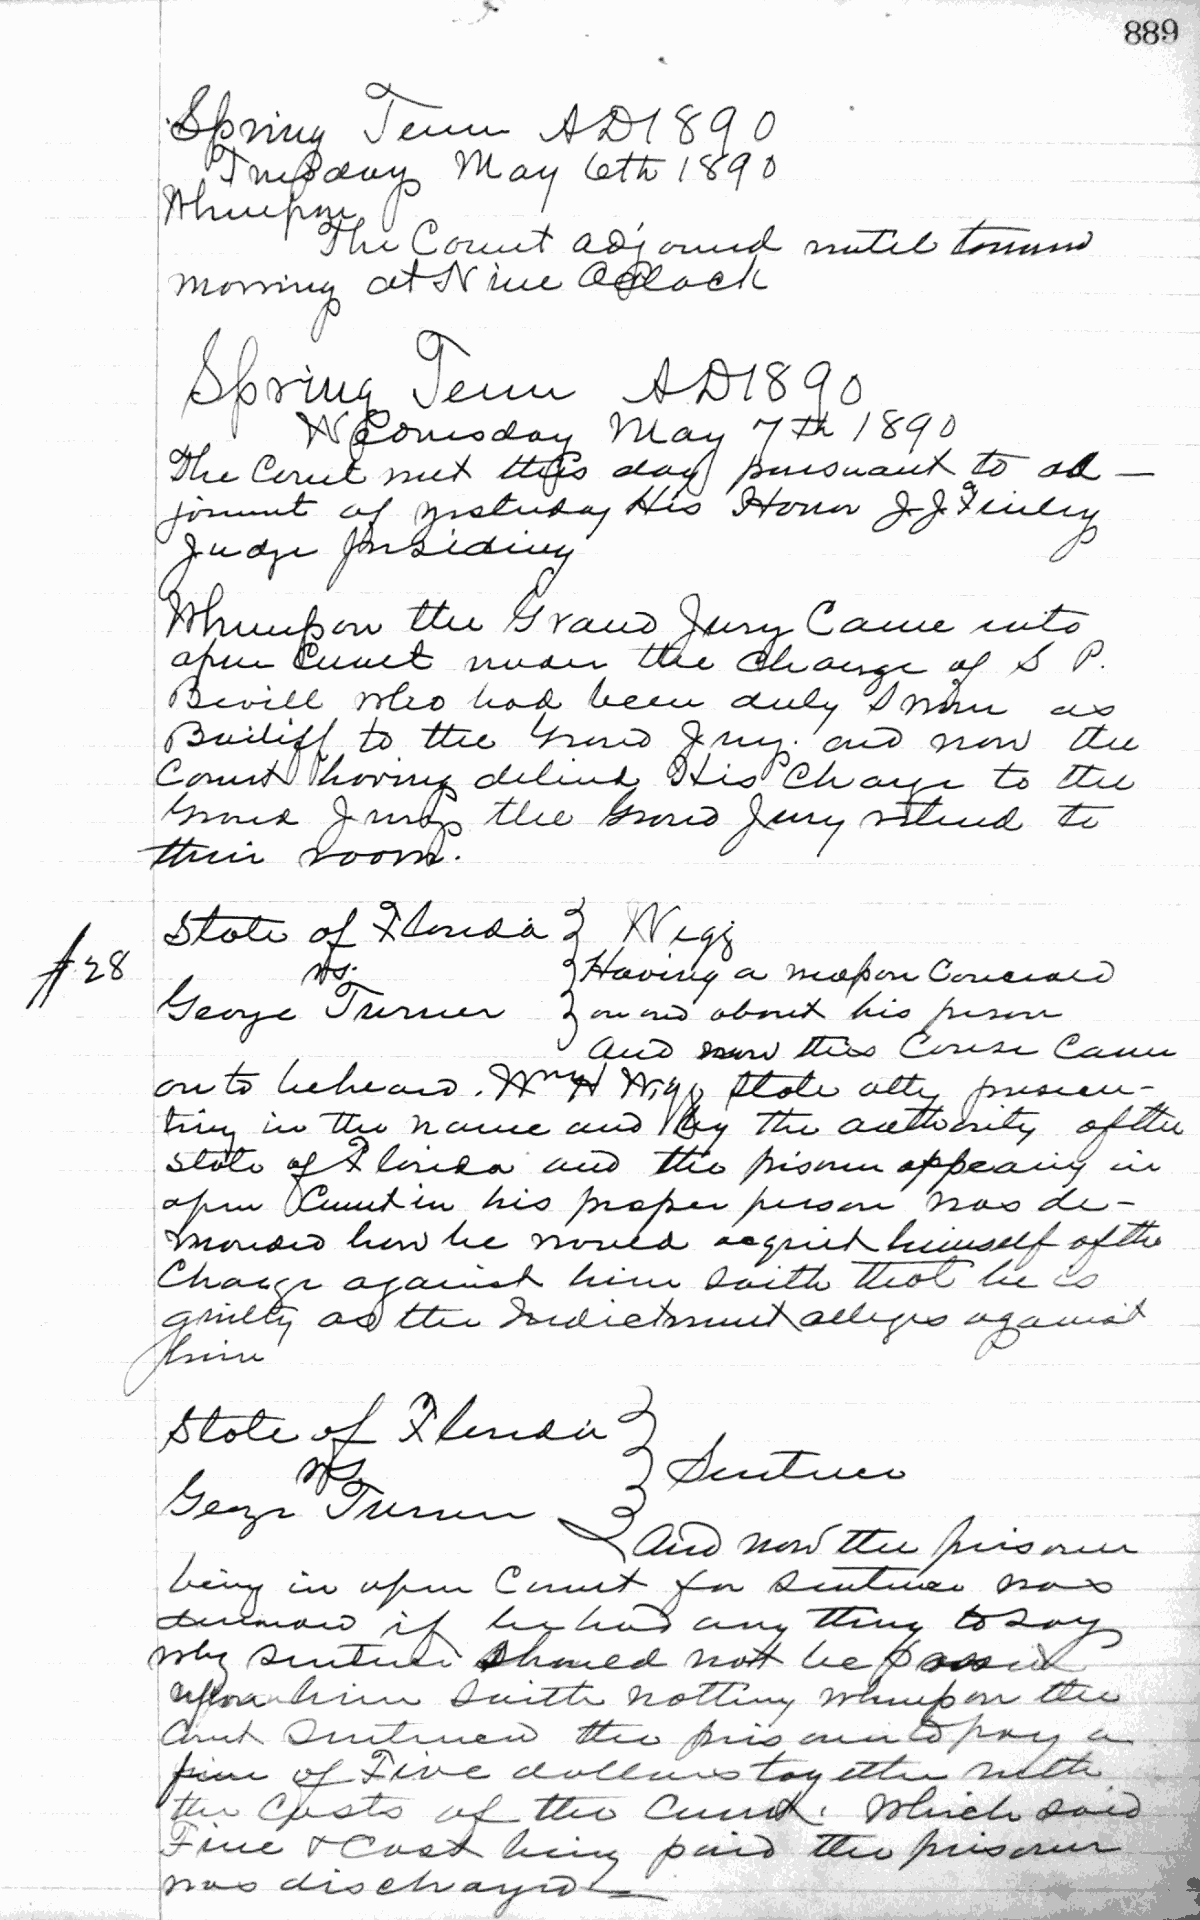 889
Spring Term AD 1890
Tuesday May 6th 1890
Whereupon
The Court adjourned until tomorrow
morning at Nine O Clock
Spring Term AD 1890
Wednesday May 7th 1890
The Court met this day pursuant to ad-
jornmt of yesterday His Honor J J Finley
Judge Presiding
Whereupon the Grand Jury Came into
open Court under the Charge of S P.
Bevill who had been duly Sworn as
Bailiff to the Grand Jury. and now the
Court having delivered His Charge to the
Grand Jury the Grand Jury retired to
their room.
#28
State of Florida
vs.
George Turner
Having a weapon Concealed
on and about his person
And now this Cause Came
on to be heard. Wm H Wigg State atty prosecu-
ting in the name and by the authority of the
State of Florida and the prisoner appearing in
open Court in his proper person was de-
manded how he would acquit himself of the
Charge against him saith that he is
guilty as the Indictment alleges against
him
State of Florida
vs
George Turner
Sentence
And now the prisoner
being in open Court for Sentence was
demand if he had any thing to say
why sentence should not be passed
upon him saith nothing whereupon the
Court Sentenced the prisoner to pay a
fine of Five dollars together with
the Costs of the Court. Which said
Fine & Cost being paid the prisoner
was discharged